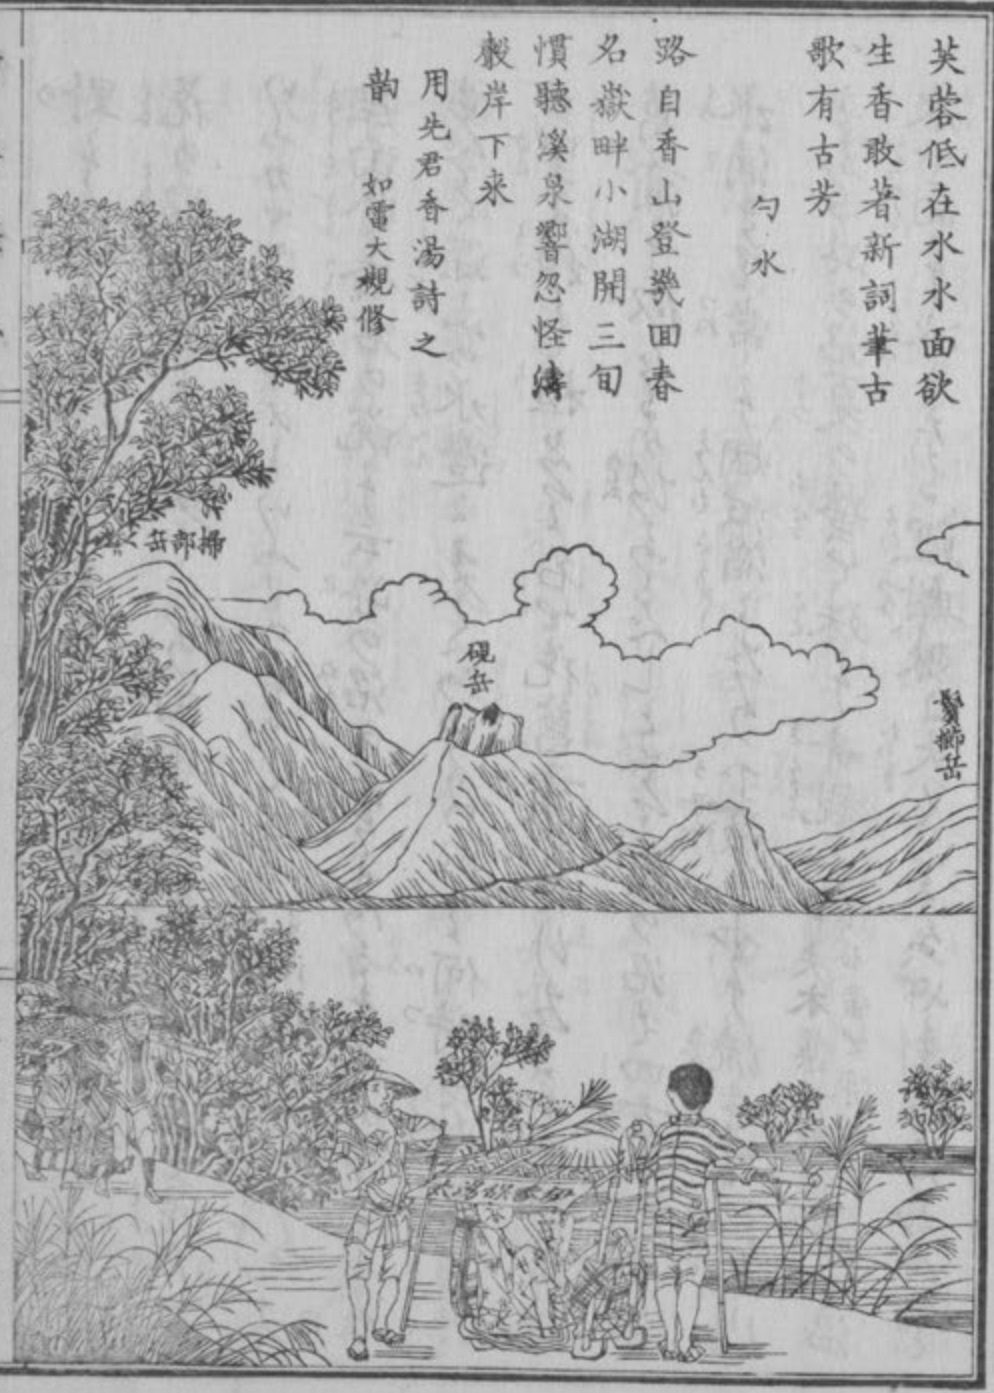 芙蓉低在水水面欲
生香敢著新詞筆古
歌有古芳
勺水
路自香山登幾囬春
名嶽畔小湖開三旬
慣聽溪泉響忽怪濤
聲岸下来
用先君香湯詩之
韵
如電大槻修
掃部岳
硯岳
鬢櫛岳